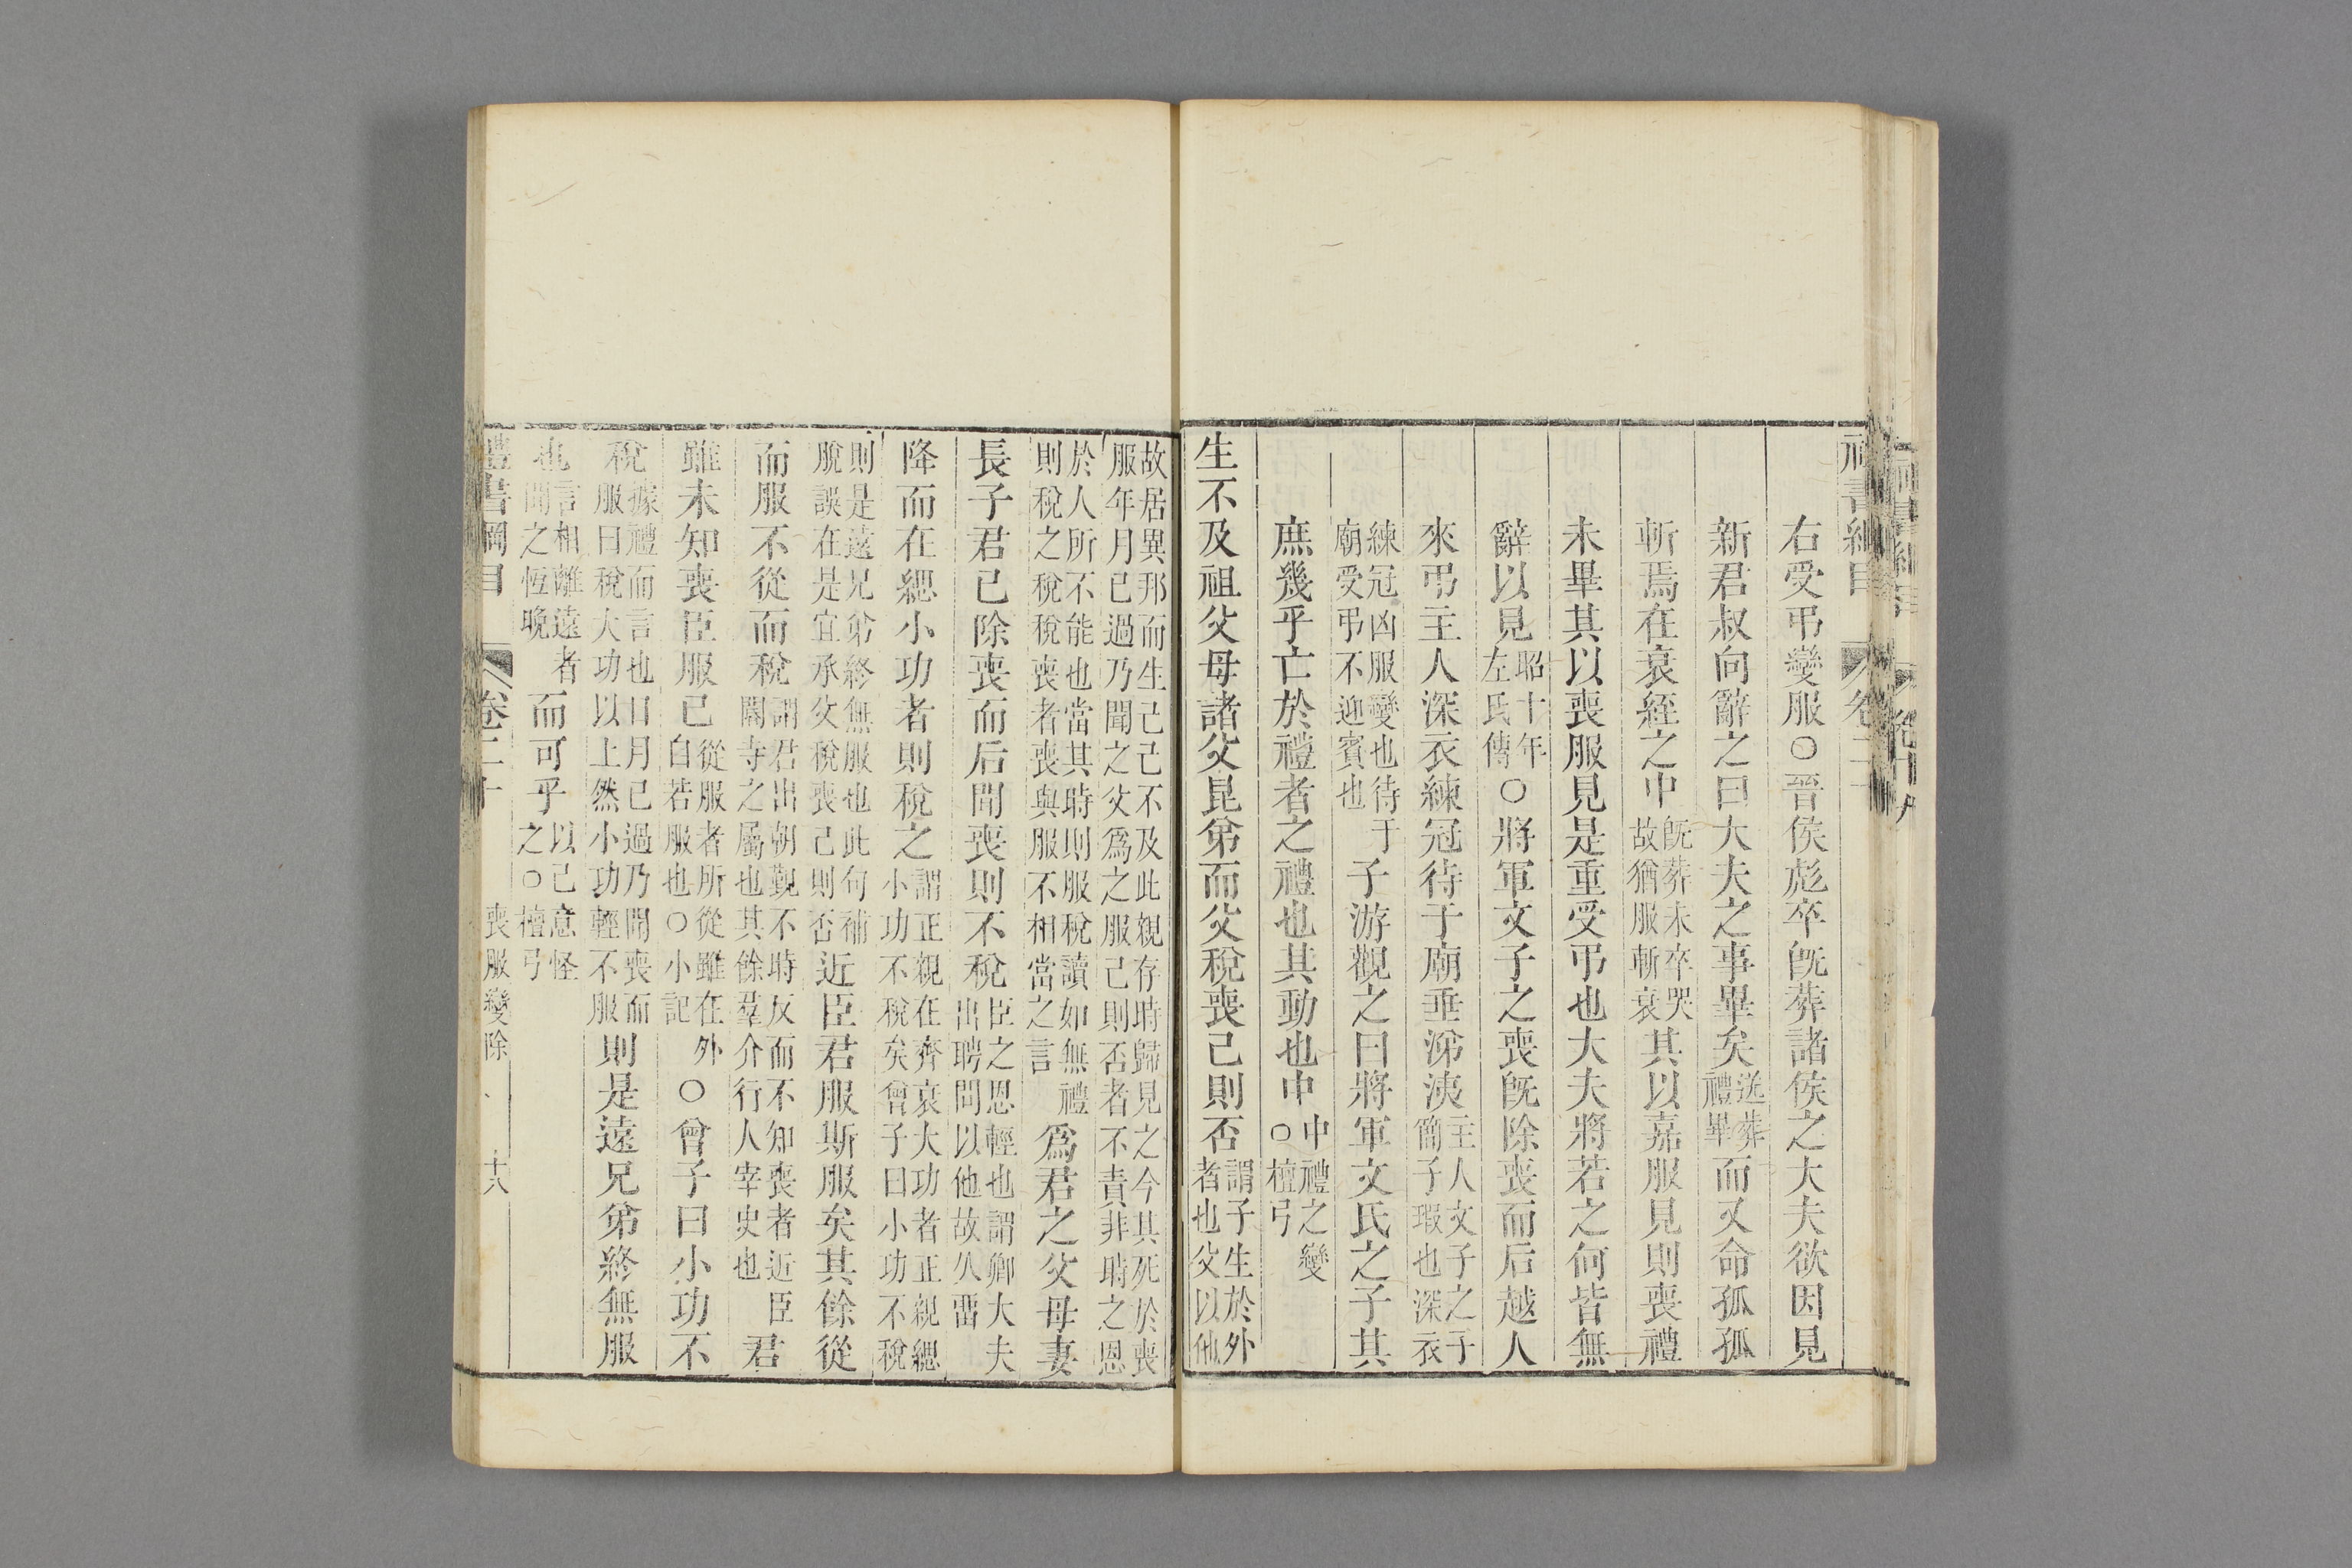 右受弔變服○晉侯彪卒旣葬諸侯之大夫欲因見
新君叔向辭之曰大夫之事畢矣送葬禮畢而又命孤孤
斬焉在衰絰之中旣葬未卒哭故猶服斬衰其以嘉服見則喪禮
未畢其以喪服見是重受弔也大夫將若之何皆無
辭以見昭十年左氏傳○將軍文子之喪旣除喪而后越人
來弔主人深衣練冠待于廟垂涕洟主人文子之子簡子瑕也深衣
練冠凶服變也待于廟受弔不迎賓也子游觀之曰將軍文氏之子其
庶幾乎亡於禮者之禮也其動也中中禮之變○檀弓
生不及祖父母諸父昆弟而父稅喪己則否謂子生於外者也父以他
故居異邦而生己己不及此親存時歸見之今其死於喪服年月已過乃聞之父爲之服己則否者不責非時之恩
於人所不能也當其時則服稅讀如無禮則稅之稅稅喪者喪與服不相當之言爲君之父母妻
長子君已除喪而后聞喪則不稅臣之恩輕也謂卿大夫出聘問以他故久畱
降而在緦小功者則稅之謂正親在齊衰大功者正親緦小功不稅矣曾子曰小功不稅
則是遠兄弟終無服也此句補脫誤在是宜承父稅喪己則否近臣君服斯服矣其餘從
而服不從而稅謂君出朝覲不時反而不知喪者近臣閽寺之屬也其餘羣介行人宰史也君
雖未知喪臣服已從服者所從雖在外自若服也○小記○曾子曰小功不
稅據禮而言也日月已過乃聞喪而服曰稅大功以上然小功輕不服則是遠兄弟終無服
也言相離遠者聞之恆晚而可乎以己意怪之○檀弓
禮書綱目 卷二十 喪服變除 十八